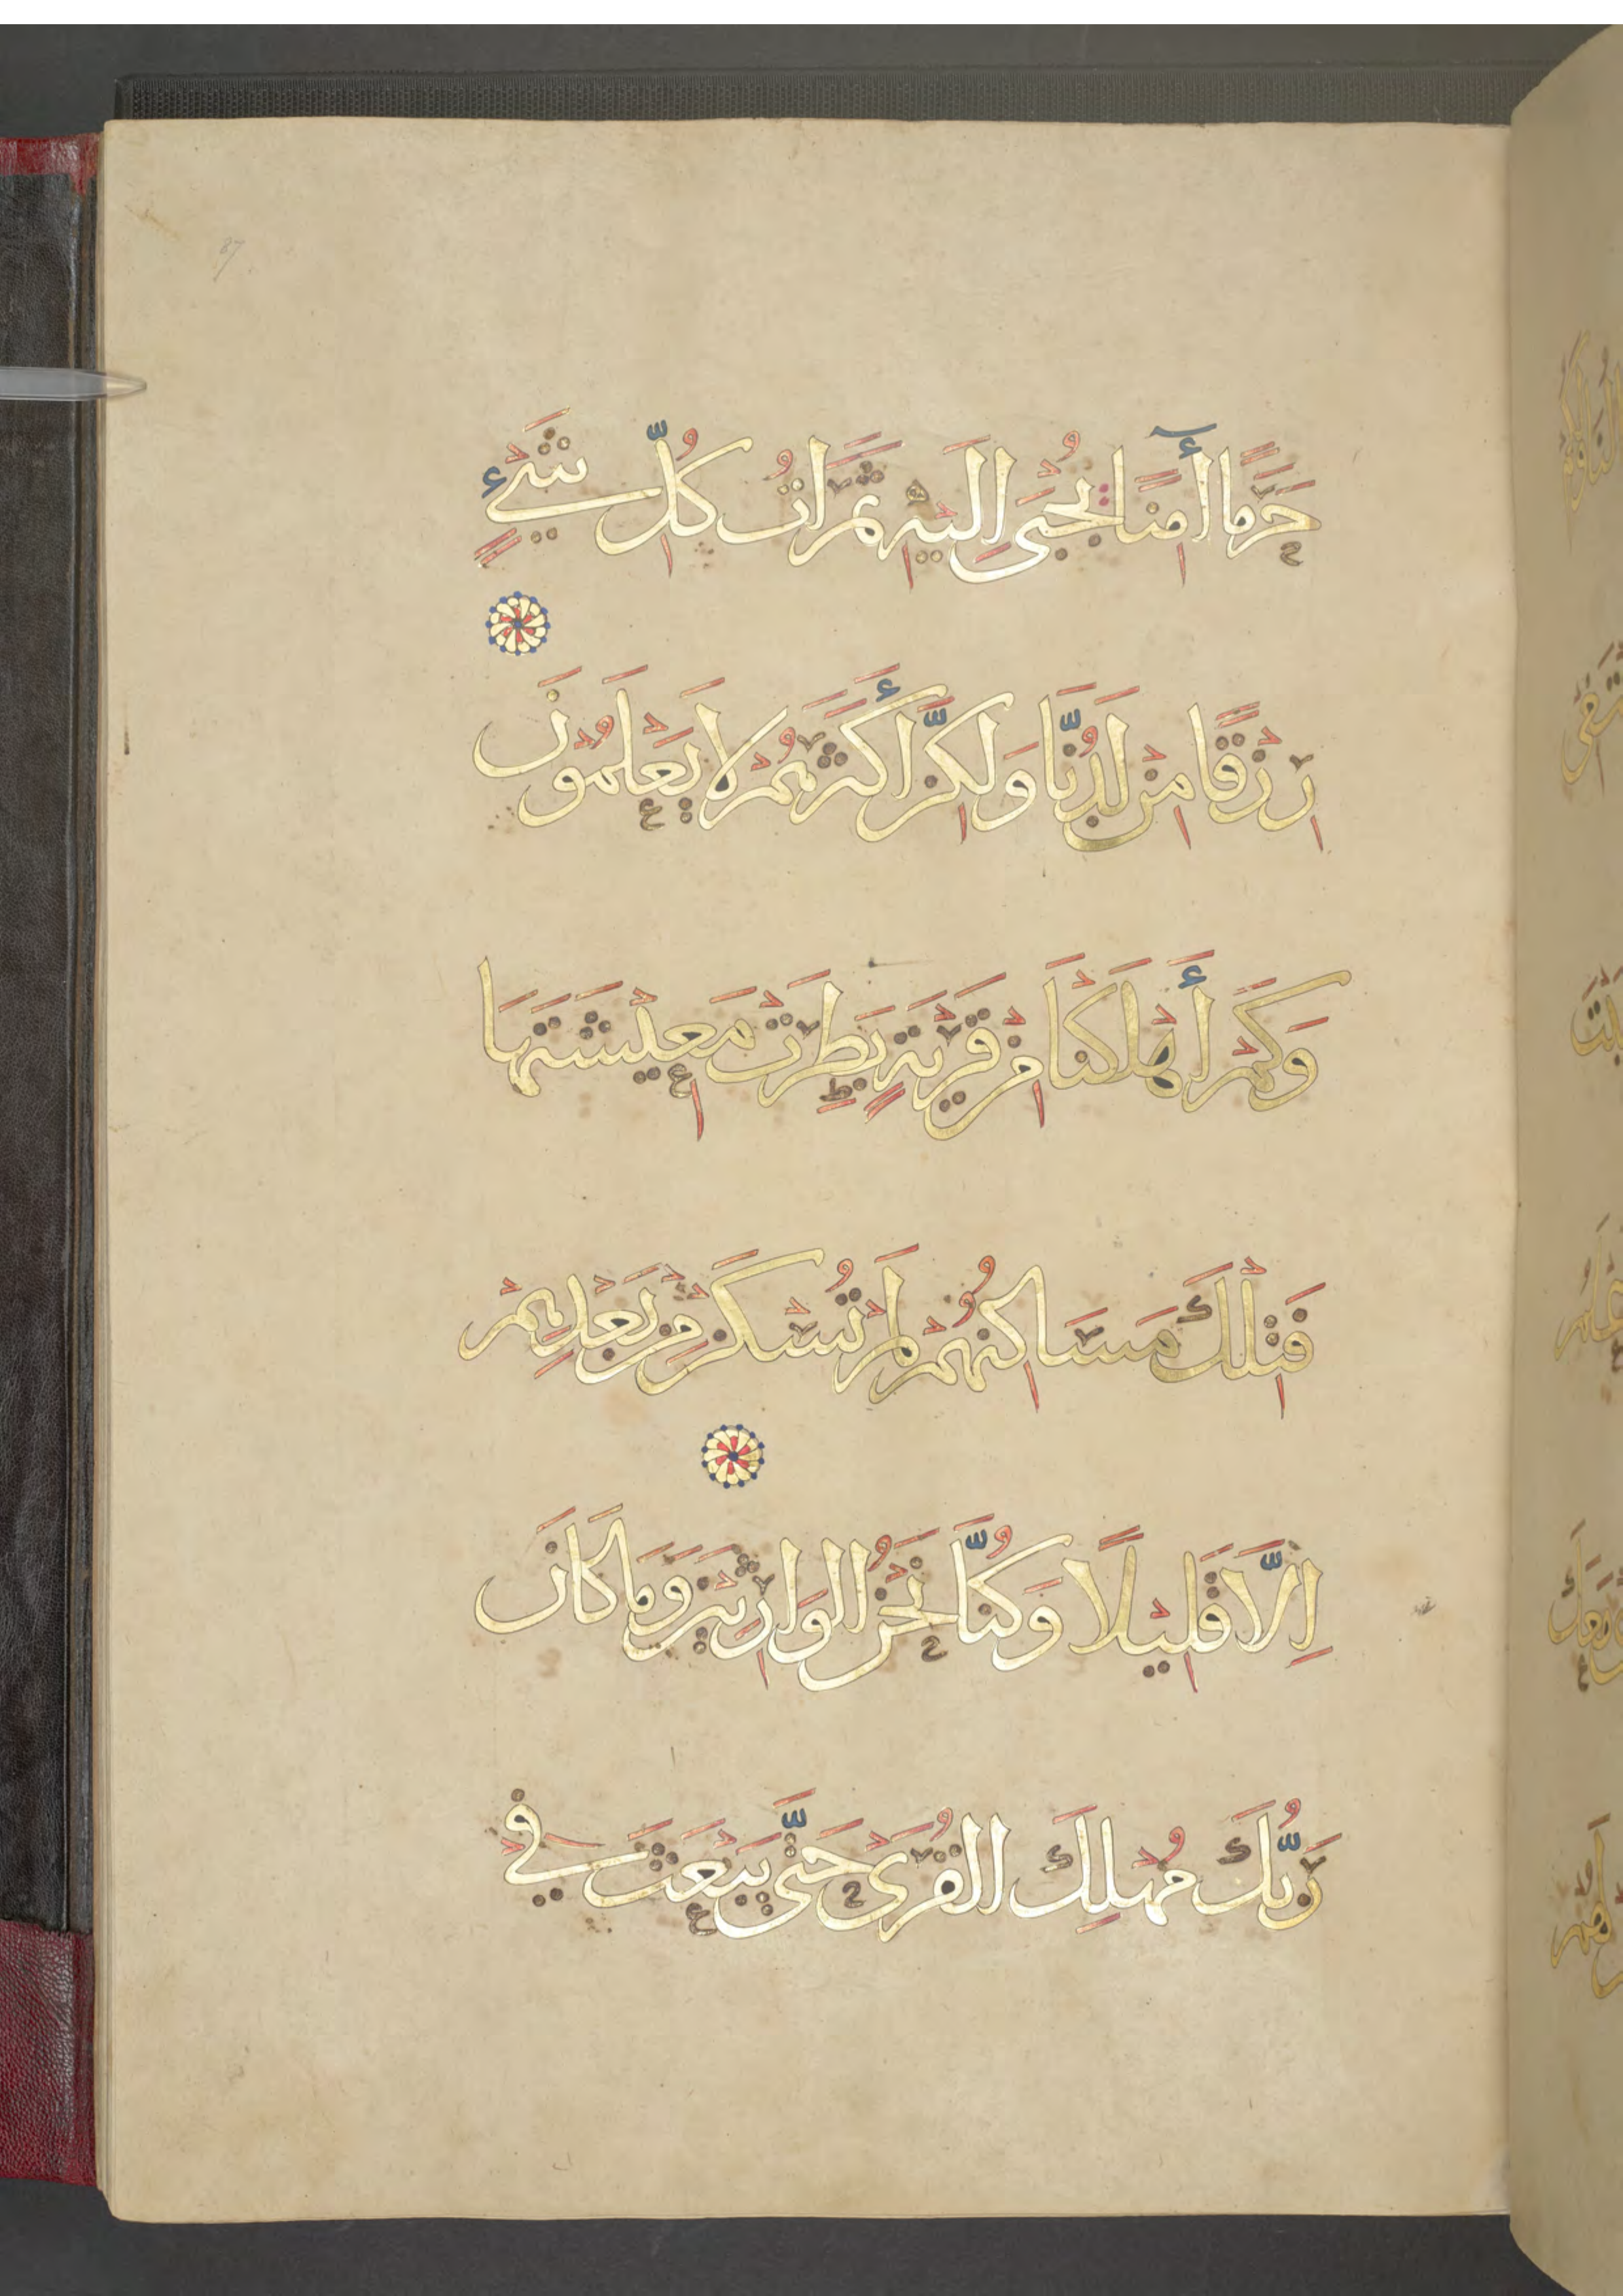 87
حَرَمًا أٓمِنًا يُجْبَى اِلَيْهِ ثَمَرَاتُ كُلِّ شَيْءٍ
رِزْقًا مِنْ لَدُنَّا وَلَكِنَّ أَكْثَرَهُمْ لَا يَعْلَمُونَ
وَكَمْ أَهْلَكْنَا مِنْ قَرْيَةٍ بَطِرَتْ مَعِيْشَتَهَا
فَتِلْكَ مَسَاكِنُهُمْ لَمْ تُسْكَنْ مِنْ بَعْدِهِمْ
اِلَّا قَلِيْلًا وَكُنَّا نَحْنُ الْوَارِثِيْنَ وَمَا كَانَ
رَبُّكَ مُهْلِكَ الْقُرَى حَتَّى يَبْعَثَ فِي